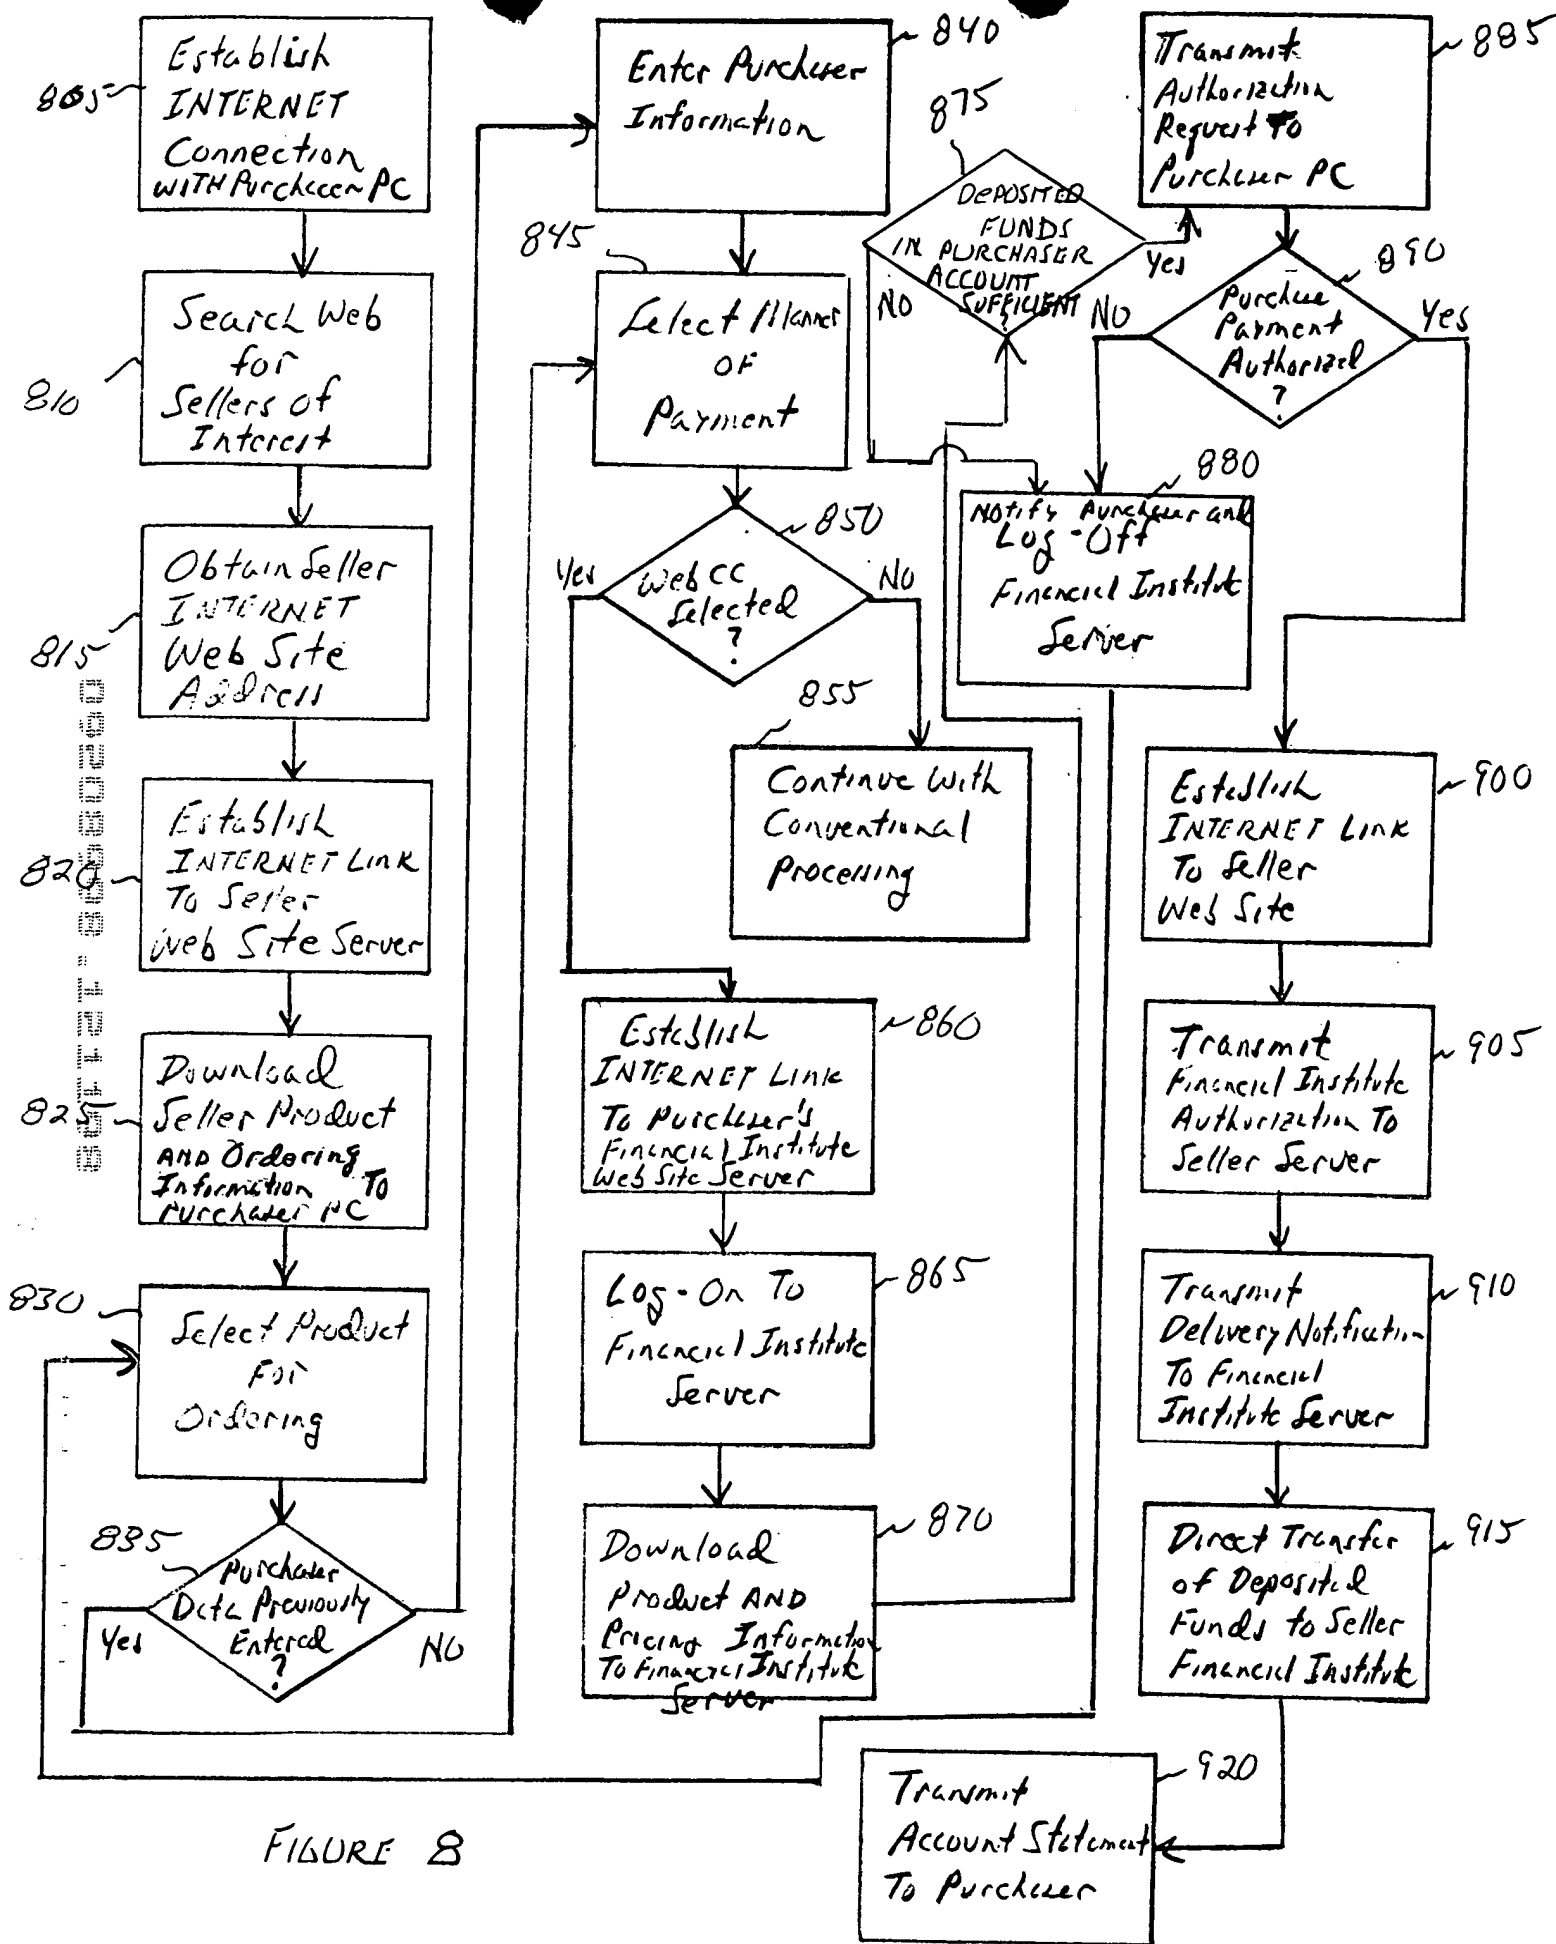 805
Establish
INTERNET
Connection
WITH Purchaser PC
810
Search Web
for
Sellers of
Interest
815
Obtain Seller
INTERNET
Web Site
Address
820
Establish
INTERNET LINK
To Seller
Web Site Server
825
Download
Seller Product
AND Ordering
Information To
Purchaser PC
830
Select Product
For
Ordering
835
Purchaser
Data Previously
Entered
?
Yes
NO
840
Enter Purchaser
Information
845
Select Manner
OF
Payment
850
Web CC
Selected
?
Yes
NO
855
Continue With
Conventional
Processing
860
Establish
INTERNET LINK
To Purchaser's
Financial Institute
Web Site Server
865
Log-On To
Financial Institute
Server
870
Download
Product AND
Pricing Information
To Financial Institute
Server
875
DEPOSITED
FUNDS
IN PURCHASER
ACCOUNT
SUFFICIENT
?
NO
Yes
880
Notify Purchaser and
Log-Off
Financial Institute
Server
885
Transmit
Authorization
Request To
Purchaser PC
890
Purchase
Payment
Authorized
?
NO
Yes
900
Establish
INTERNET LINK
To Seller
Web Site
905
Transmit
Financial Institute
Authorization To
Seller Server
910
Transmit
Delivery Notification
To Financial
Institute Server
915
Direct Transfer
of Deposited
Funds to Seller
Financial Institute
920
Transmit
Account Statement
To Purchaser
FIGURE 8